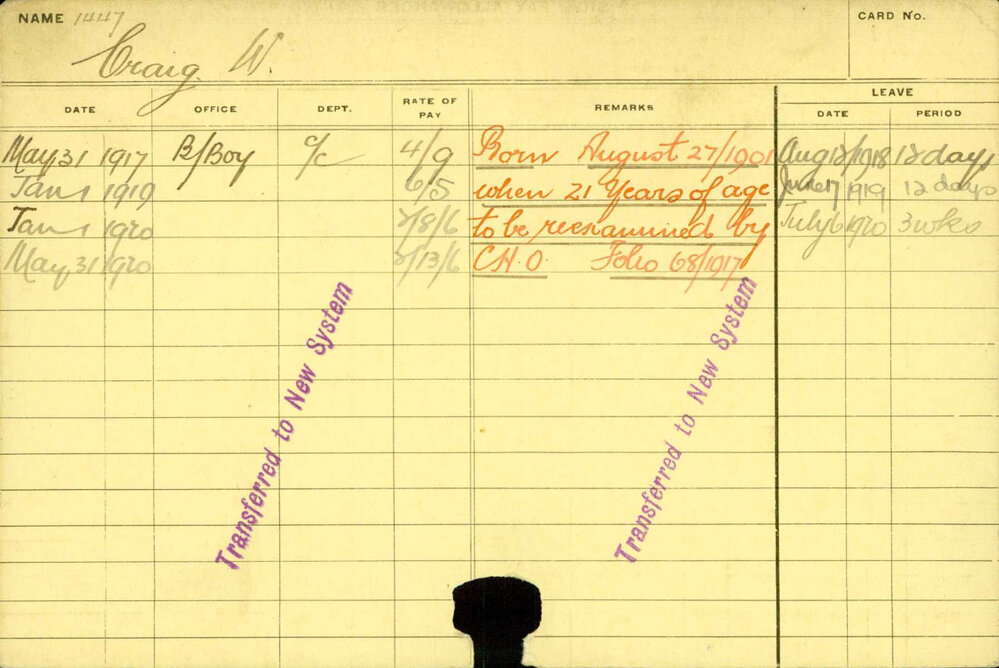 NAME 1447 CARD No.
Craig. W.
LEAVE
DATE OFFICE DEPT. RATE OF PAY REMARKS DATE PERIOD
May 31 1917 B/Boy 4/9 Born August 27/1901 Aug 12/1918 12 days
Jan 1 1919 6/5 when 21 Years of age June 17 1919 12 days
Jan 1 1920 /8/6 to be reexamined by July 6 1920 3 wks
May 31 1920 /13/6 C.H.O. Folio 68/1917
Transferred to New System
Transferred to New System